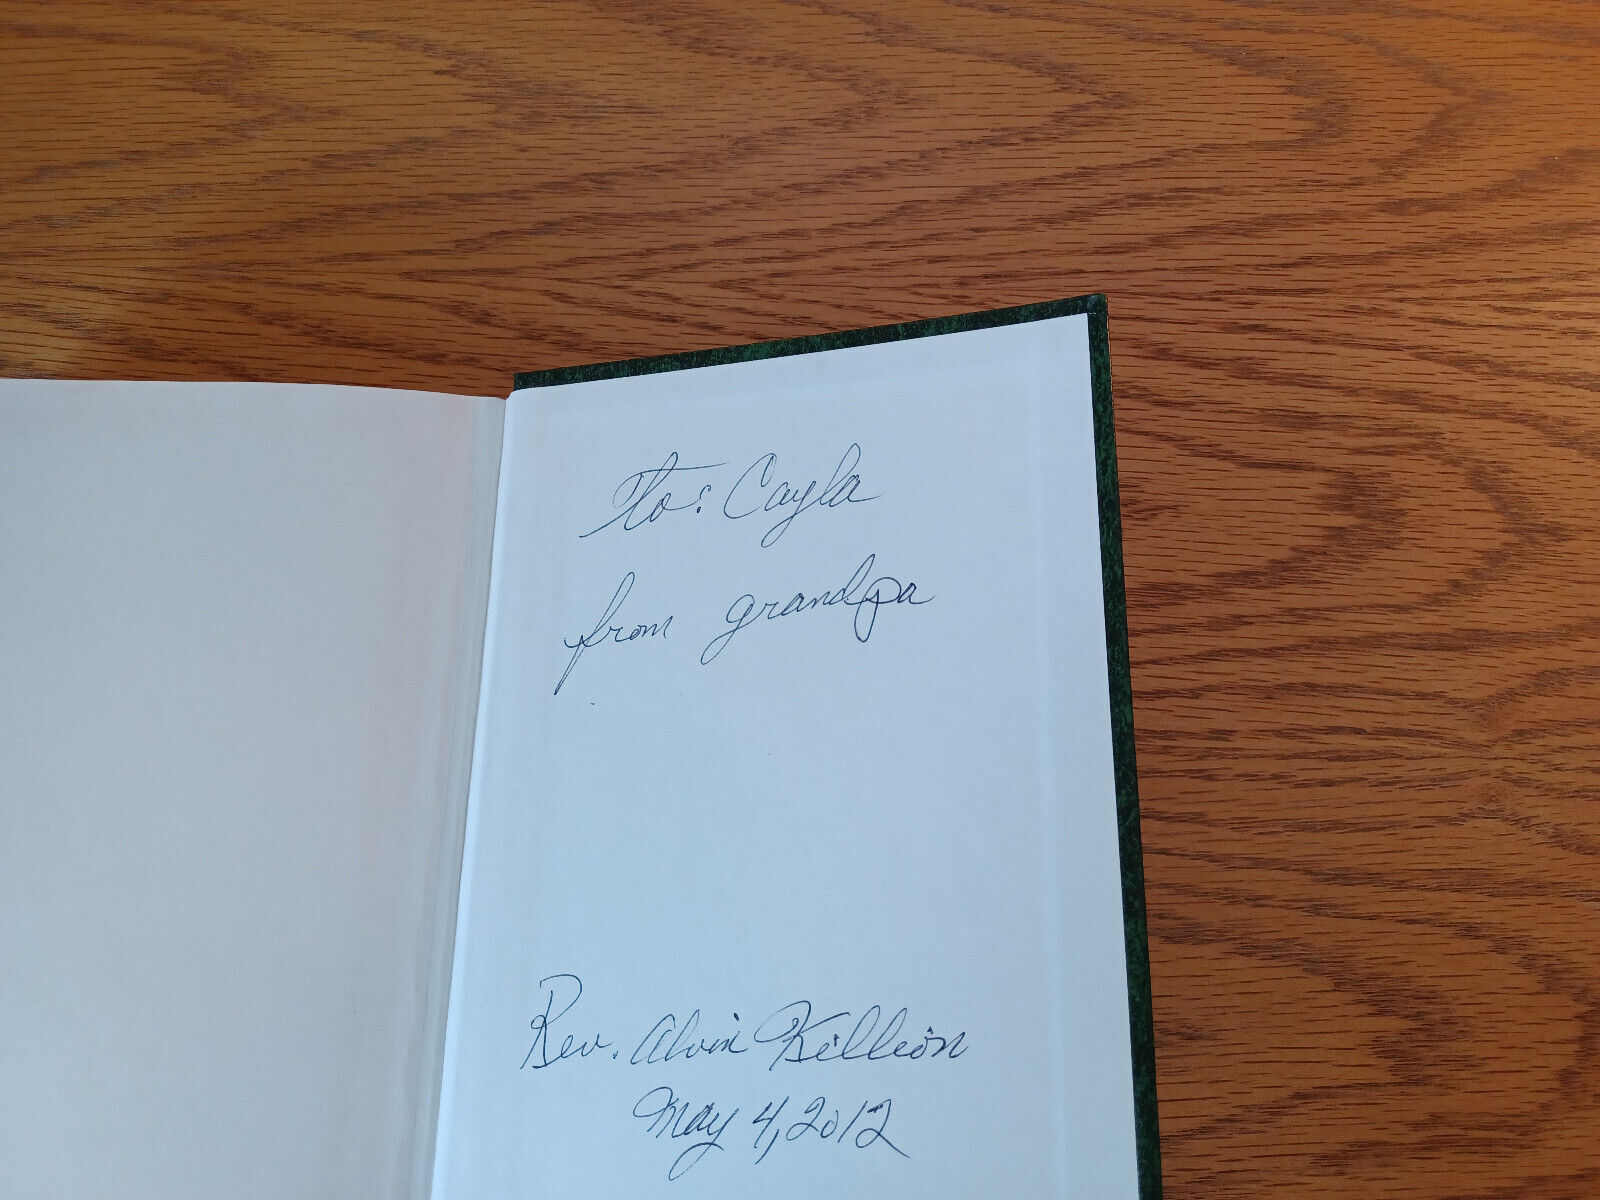 To: Cayla
from grandpa
Rev. Alvin Killion
May 4, 2012